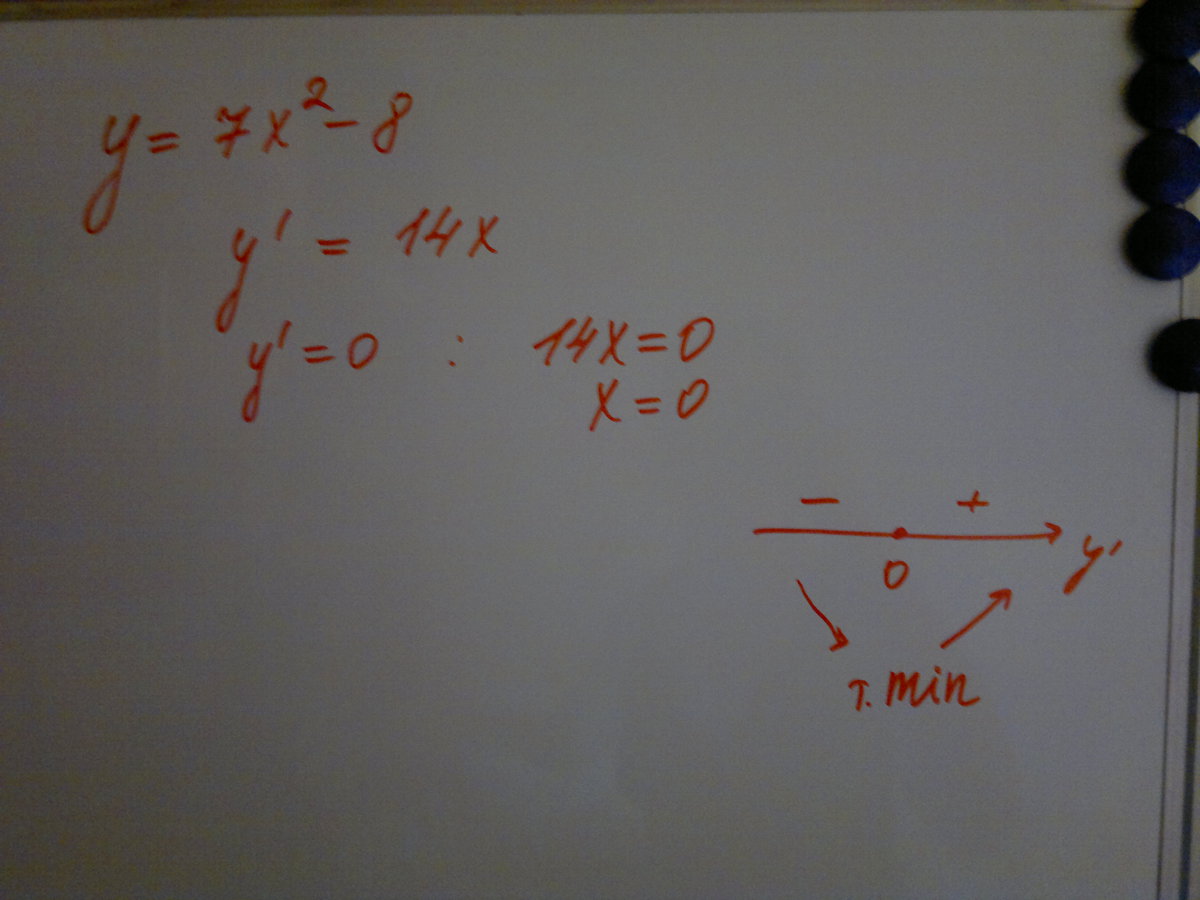 y = 7x² - 8
y' = 14x
y' = 0 : 14x = 0
x = 0
- +
0 y'
т. min